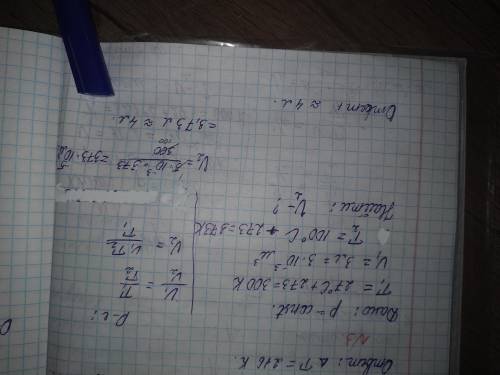 Ответ: Δ T = 246 K.
№3
Дано: p = const.
T₁ = 27°C + 273 = 300 K
V₁ = 3 л = 3 · 10⁻³ м³
T₂ = 100°C + 273 = 373 K
Найти:
V₂ - ?
Р-е:
V₁/V₂ = T₁/T₂
V₂ = V₁T₂/T₁
= 3,73 л ≈ 4 л.
Ответ: ≈ 4 л.